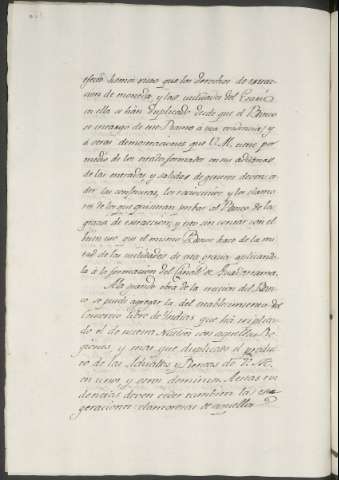 efecto hemos visto que los derechos de extrac-
cion de moneda y las utilidades del Erario
en ella se han duplicado desde que el Banco
se encargó de este Ramo á su evidencia, y
á otras demostraciones que V. M. tiene por
medio de los estados formados en sus aduanas
de las entradas y salidas de generos deven ce-
der las conjeturas, los raciocinios y los clamo-
res de los que quisieran, privar al Banco de la
gracia de extraccion, y esto sin contar con el
buen uso que el mismo Banco hace de la mi-
tad de las utilidades de esta gracia aplicando-
la á la formacion del Canal de Guadarrama.
A la grande obra de la ereccion del Ban-
co se puede agregar la del establecimiento del
Comercio libre de Indias que há triplica-
do el de nuestra Nacion con aquellas Re-
giones y mas que duplicado el produc-
to de las Aduanas y Rentas de V. M.
en unos y otros dominios. A estas evi-
dencias deven ceder tambien las exa-
geraciones clamorosas de aquellos